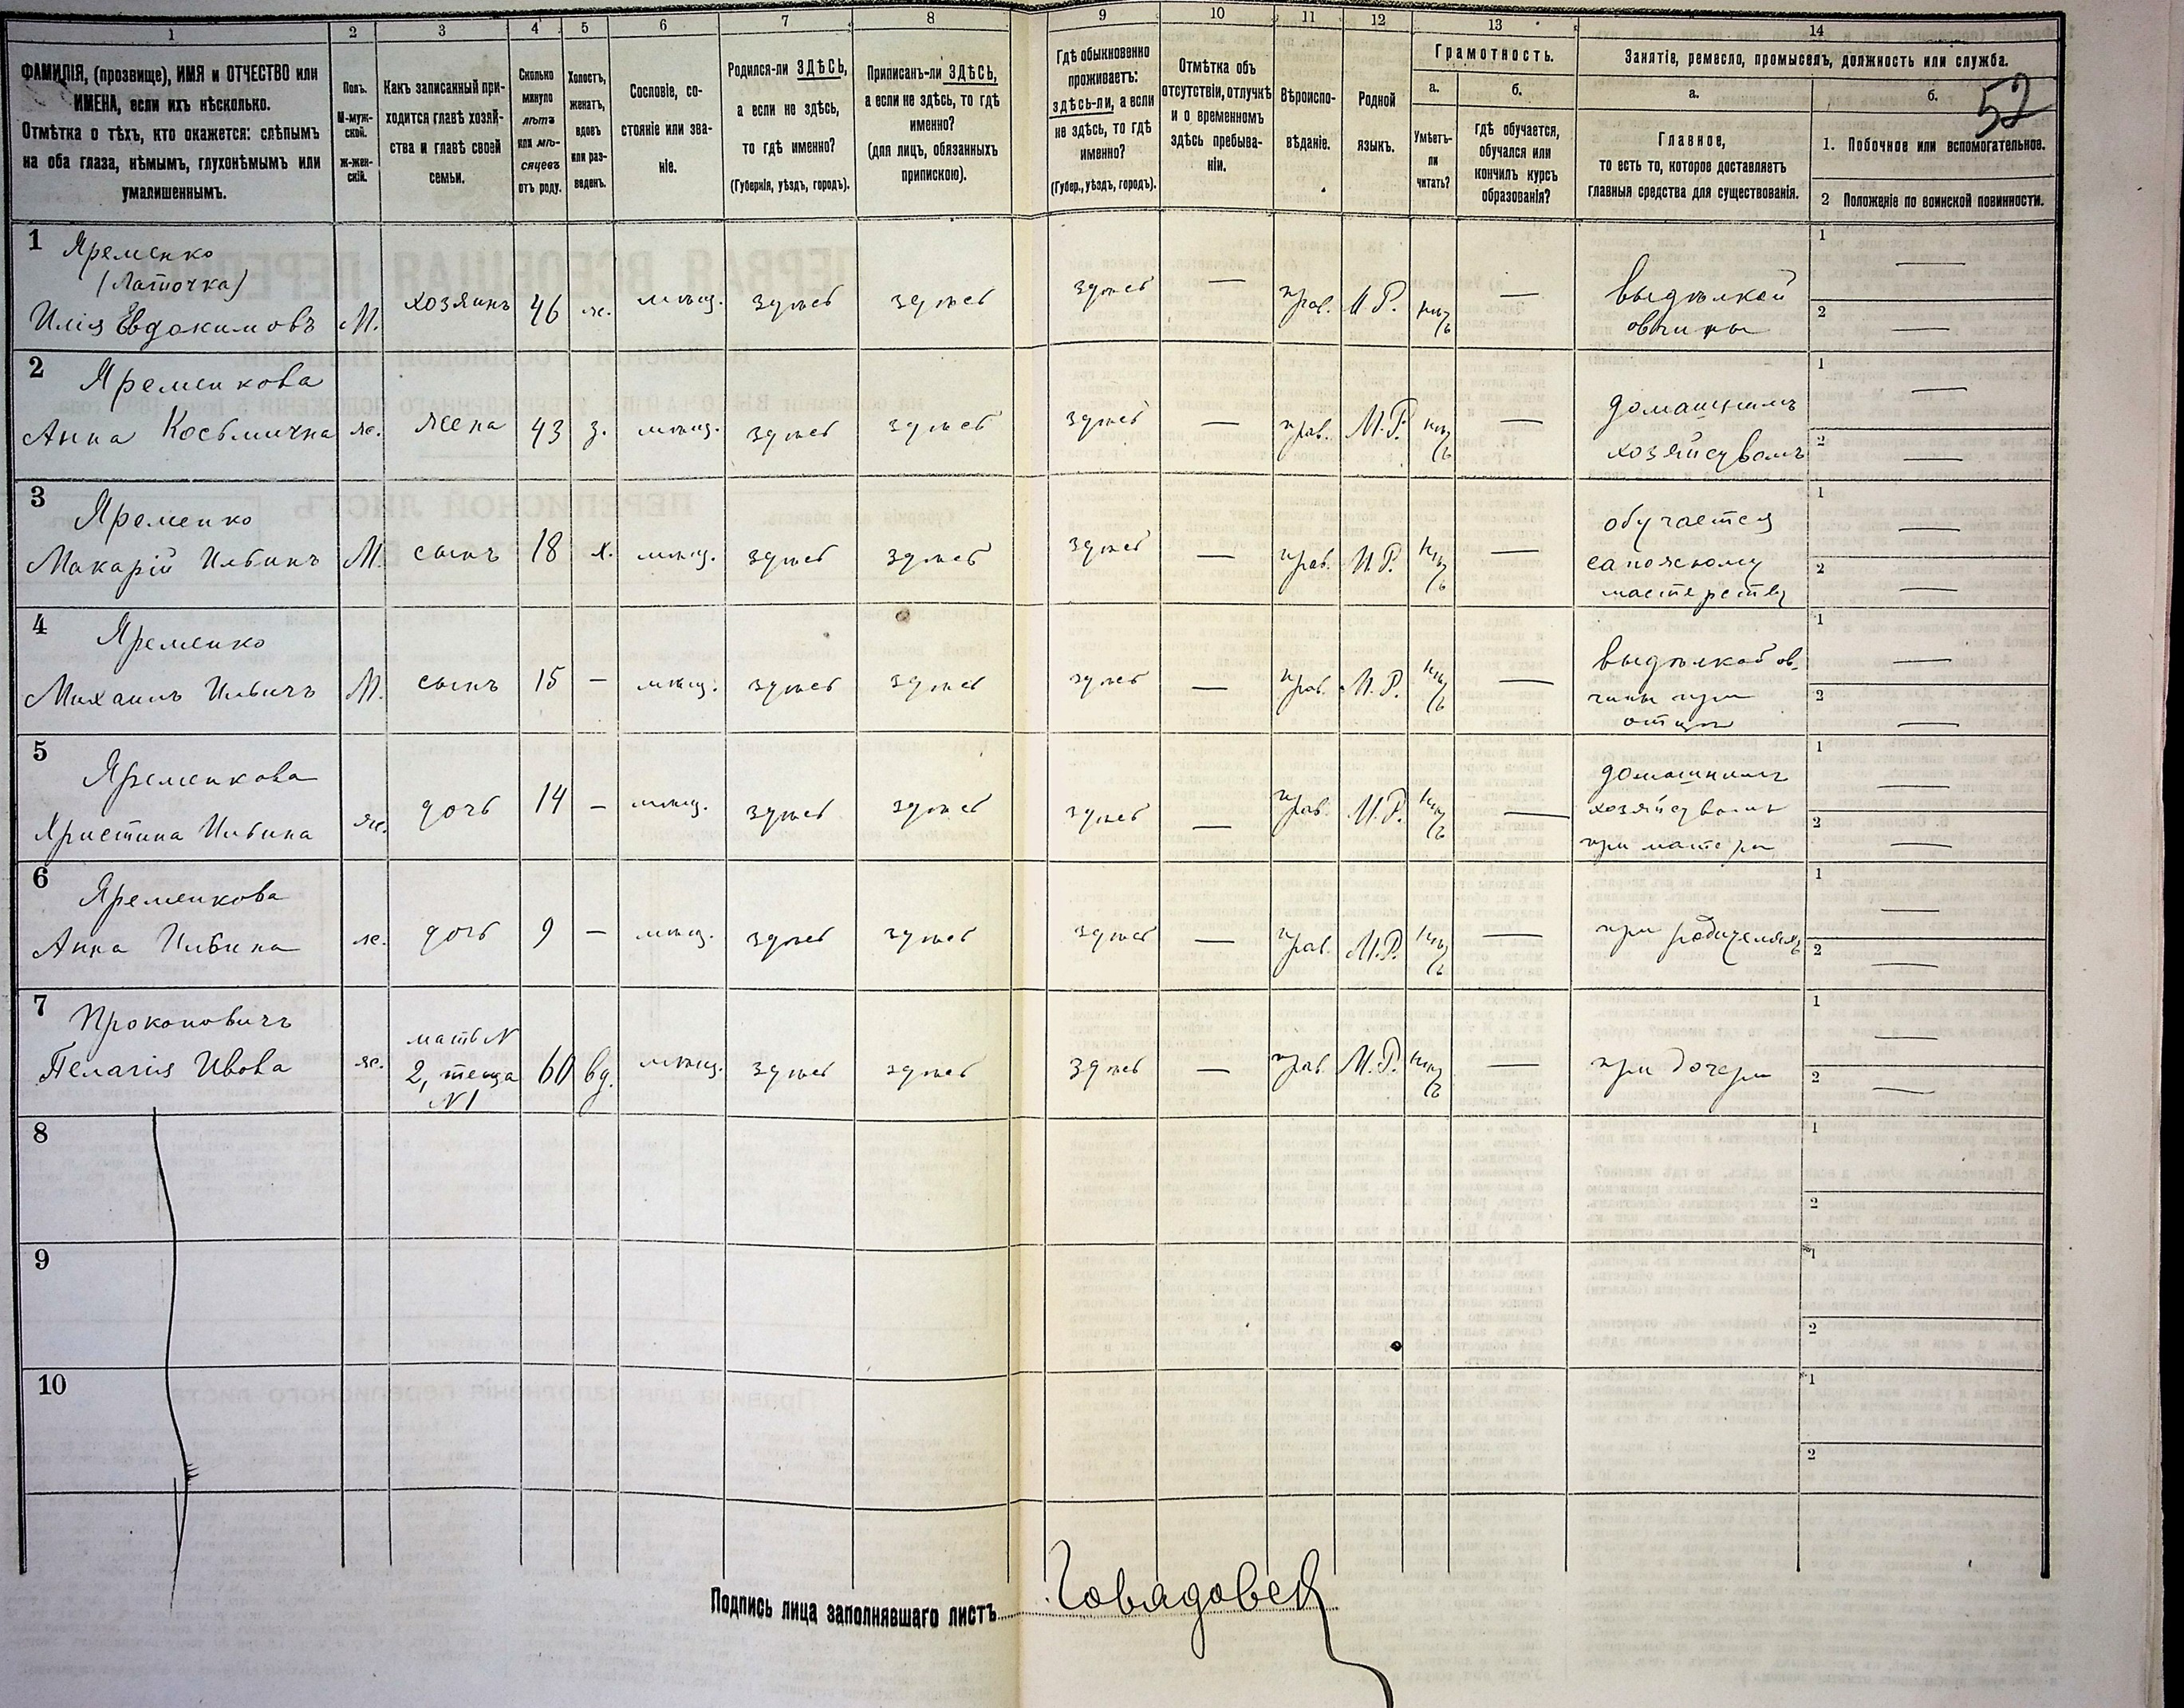 1 2 3 4 5 6 7 8 9 10 11 12 13 14
ФАМИЛІЯ, (прозвище), ИМЯ и ОТЧЕСТВО или
ИМЕНА, если ихъ нѣсколько.
Отмѣтка о тѣхъ, кто окажется: слѣпымъ
на оба глаза, нѣмымъ, глухонѣмымъ или
умалишеннымъ.
Полъ.
М-муж-
ской.
Ж-жен-
скій.
Какъ записанный при-
ходится главѣ хозяй-
ства и главѣ своей
семьи.
Сколько
минуло
лѣтъ
или мѣ-
сяцевъ
отъ роду.
Холостъ,
женатъ,
вдовъ
или раз-
веденъ.
Сословіе, со-
стояніе или зва-
ніе.
Родился-ли ЗДѢСЬ,
а если не здѣсь,
то гдѣ именно?
(Губернія, уѣздъ, городъ).
Приписанъ-ли ЗДѢСЬ,
а если не здѣсь, то гдѣ
именно?
(для лицъ, обязанныхъ
припискою).
Гдѣ обыкновенно
проживаетъ:
здѣсь-ли, а если
не здѣсь, то гдѣ
именно?
(Губер., уѣздъ, городъ).
Отмѣтка объ
отсутствіи, отлучкѣ
и о временномъ
здѣсь пребыва-
ніи.
Вѣроиспо-
вѣданіе.
Родной
языкъ.
Грамотность.
а.
Умѣетъ-
ли
читать?
б.
гдѣ обучается,
обучался или
кончилъ курсъ
образованія?
Занятіе, ремесло, промыселъ, должность или служба.
а.
Главное,
то есть то, которое доставляетъ
главныя средства для существованія.
б.
52
1. Побочное или вспомогательное.
2 Положеніе по воинской повинности.
1 Яременко
(Латочка)
Илія Евдокимовъ М. хозяинъ 46 ж. мѣщ. здѣсь здѣсь здѣсь — прав. М.Р. нѣтъ —
выдѣлкой
овчины
1 —
2 —
2 Яременкова
Анна Косьмична ж. жена 43 з. мѣщ. здѣсь здѣсь здѣсь — прав. М.Р. нѣтъ —
домашнимъ
хозяйствомъ
1 —
2 —
3 Яременко
Макарій Ильинъ М. сынъ 18 х. мѣщ. здѣсь здѣсь здѣсь — прав. М.Р. нѣтъ —
обучается
сапожному
мастерству
1 —
2 —
4 Яременко
Михаилъ Ильичъ М. сынъ 15 — мѣщ. здѣсь здѣсь здѣсь — прав. М.Р. нѣтъ —
выдѣлкой ов-
чины при
отцѣ
1 —
2 —
5 Яременкова
Христина Ильина ж. дочь 14 — мѣщ. здѣсь здѣсь здѣсь — прав. М.Р. нѣтъ —
домашнимъ
хозяйствомъ
при матери
1 —
2 —
6 Яременкова
Анна Ильина ж. дочь 9 — мѣщ. здѣсь здѣсь здѣсь — прав. М.Р. нѣтъ —
при родителяхъ
1 —
2 —
7 Прокоповичъ
Пелагія Ивова ж.
мать N
2, теща
N 1
60 вд. мѣщ. здѣсь здѣсь здѣсь — прав. М.Р. нѣтъ —
при дочери
1 —
2 —
8
1
2
9
1
2
10
1
2
Подпись лица заполнявшаго листъ